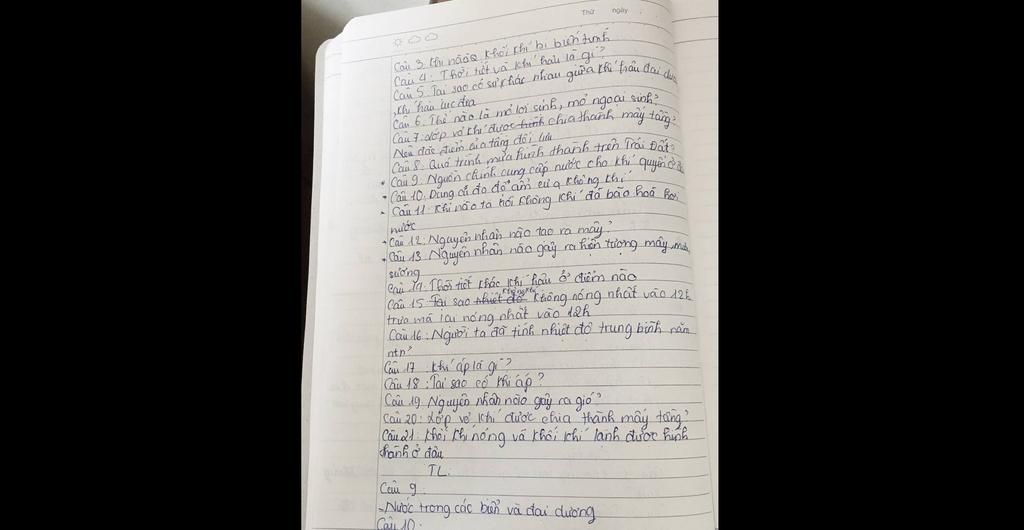 Thứ ngày
Câu 3. Khi nào khối khí bị biến tính
Câu 4. Thời tiết và khí hậu là gì?
Câu 5. Tại sao có sự khác nhau giữa khí hậu đại dương
, khí hậu lục địa
Câu 6. Thế nào là mỏ nội sinh, mỏ ngoại sinh?
Câu 7: Lớp vỏ khí được hình chia thành mấy tầng?
Nêu đặc điểm của tầng đối lưu
Câu 8. Quá trình mưa hình thành trên Trái Đất?
Câu 9. Nguồn chính cung cấp nước cho khí quyển ở đâu
Câu 10. Dụng cụ đo độ ẩm của không khí
Câu 11. Khi nào ta nói không khí đã bão hoà hơi
nước
Câu 12: Nguyên nhân nào tạo ra mây?
Câu 13. Nguyên nhân nào gây ra hiện tượng mây, mưa,
sương
Câu 14. Thời tiết khác khí hậu ở điểm nào
Câu 15 Tại sao nhiệt độ không khí không nóng nhất vào 12h
trưa mà lại nóng nhất vào 12h
Câu 16: Người ta đã tính nhiệt độ trung bình năm
ntn?
Câu 17. Khí áp là gì?
Câu 18: Tại sao có khí áp?
Câu 19. Nguyên nhân nào gây ra gió?
Câu 20: Lớp vỏ khí được chia thành mấy tầng?
Câu 21. Khối khí nóng và khối khí lạnh được hình
thành ở đâu
TL:
Câu 9
- Nước trong các biển và đại dương
Câu 10: